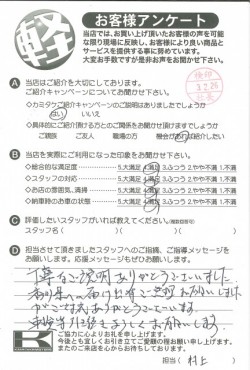 軽
お客様アンケート
当店では、お買い上げ頂いたお客様の声を可能
な限り現場に反映し、お客様により良い商品と
サービスを提供する事に努めています。
大変お手数ですが是非お声をお聞かせ下さい。
3.2.26
A 当店はご紹介を大切にしております。
ご紹介キャンペーンについてお聞かせ下さい。
◇カミタケご紹介キャンペーンの説明はありましたでしょうか
はい いいえ
◇具体的にご紹介頂ける方とのご関係をお聞かせ頂けますでしょうか
ご親戚 ご友人 職場の方 機会があれば紹介したい
B 当店を実際にご利用になった印象をお聞かせ下さい。
◇総合的な満足度 5.大満足 4.満足 3.ふつう 2.やや不満 1.不満
◇スタッフの対応 5.大満足 4.満足 3.ふつう 2.やや不満 1.不満
◇お店の雰囲気、清掃 5.大満足 4.満足 3.ふつう 2.やや不満 1.不満
◇納車時のお車の状態 5.大満足 4.満足 3.ふつう 2.やや不満 1.不満
C 評価したいスタッフがいれば教えてください。(複数回答可)
スタッフ名( )( )( )
D 担当させて頂きましたスタッフへのご指摘、ご指導メッセージを
お願い致します。応援メッセージもぜひお願いします。
丁寧なご説明ありがとうございました。
ありがとうございます。
よろしくお願いします。
K
ご協力に心よりお礼を申し上げます。
今後とも宜しくお引き立てご愛顧の程お願い申し上げます。
またのご来店を心からお待ちしております。
担当( 村上 )